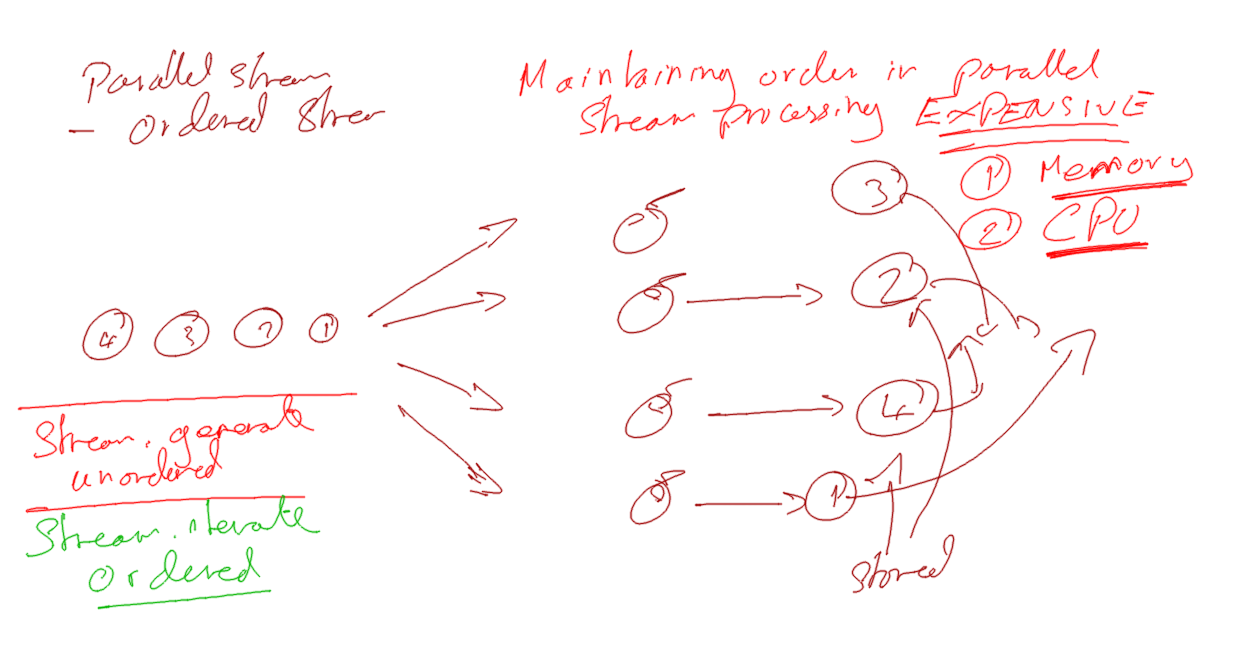 Parallel stream
- Ordered Strea
Maintaining order in parallel
Stream processing EXPENSIVE
① Memory
② CPU
3
2
4 3 2 1
4
1
Stream. generate
unordered
Stream. iterate
Ordered
stored